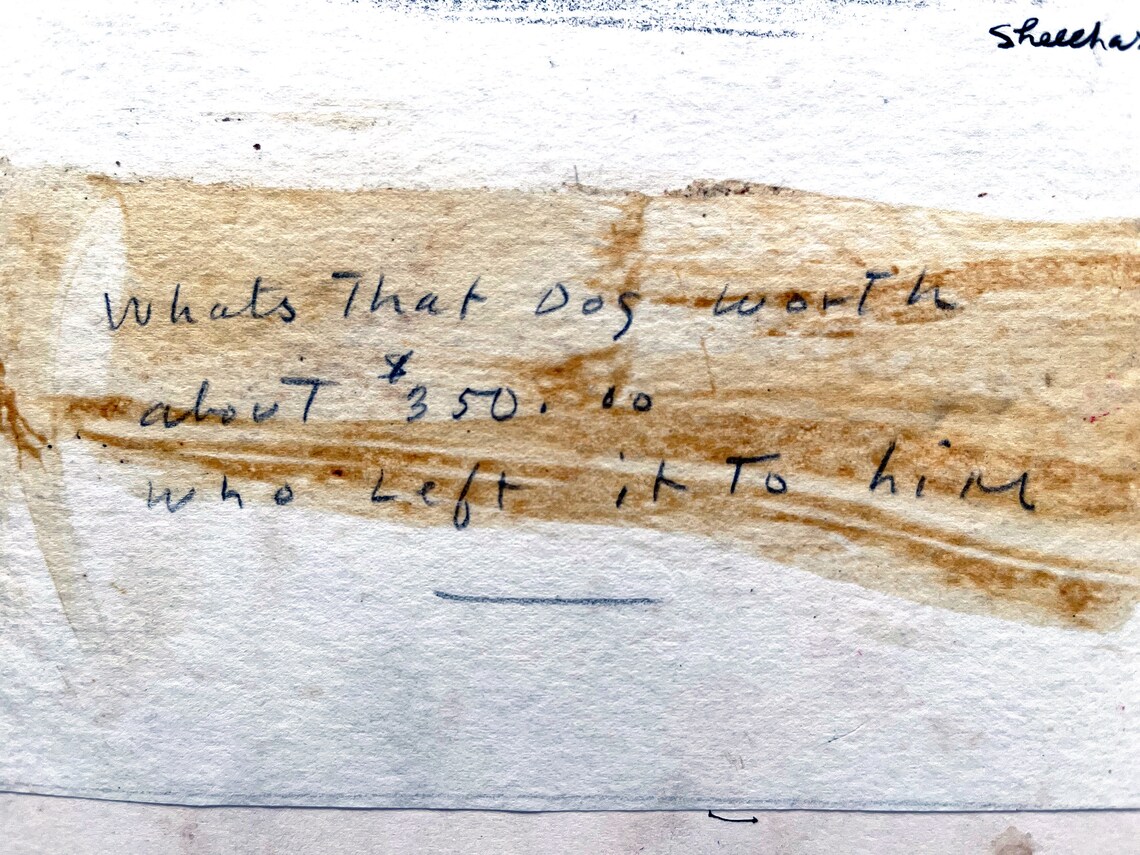 Whats That Dog worTh
abouT $350.00
who Left it To him